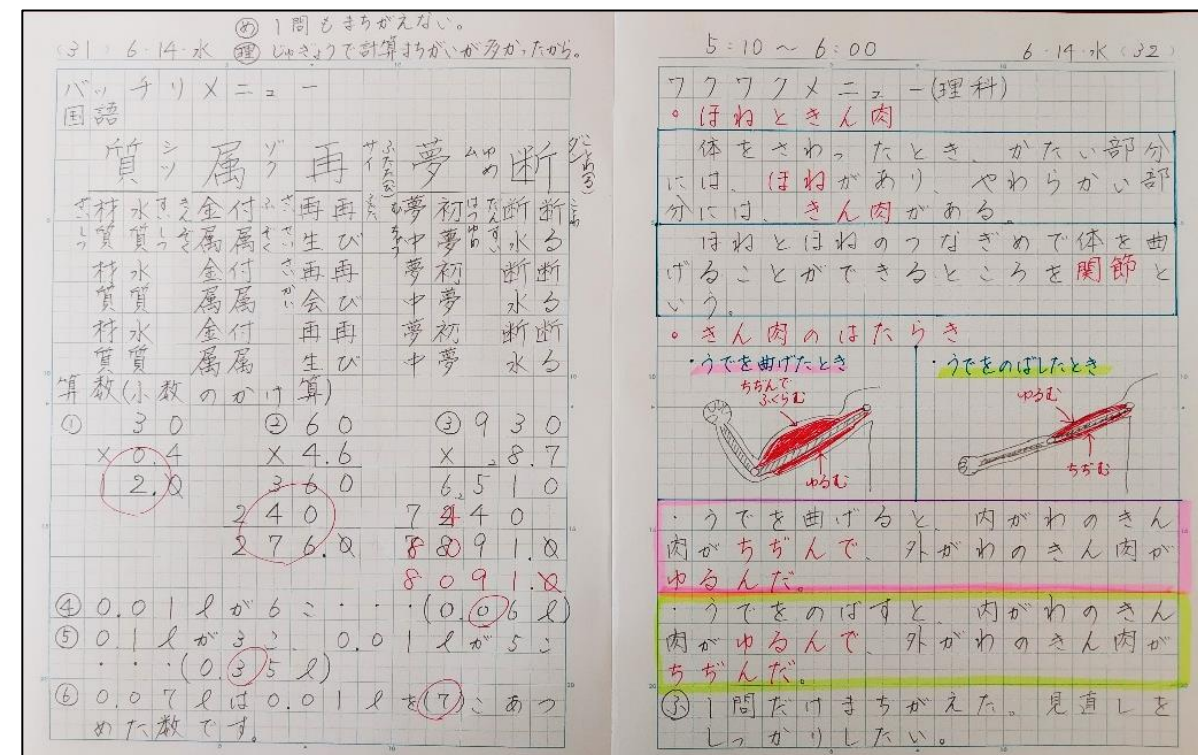 め １問もまちがえない。
(31) 6・14・水 理 じゅぎょうで計算まちがいが多かったから。
バッチリメニュー
国語
質 シツ 属 ゾク 再 サイ ふたた(び) 夢 ム ゆめ 断 ダン ことわ(る)
材質 水質 金属 付属 再生 再び 夢中 初夢 断水 断る
材質 水質 金属 付属 再会 再び 夢中 初夢 断水 断る
材質 水質 金属 付属 再生 再び 夢中 初夢 断水 断る
算数(小数のかけ算)
① 30 ② 60 ③ 930
×0.4 ×4.6 ×8.7
12.0 360 6510
240 7440
276.0 8091.0
8091.0
④ 0.01ℓが6こ・・・(0.06ℓ)
⑤ 0.1ℓが3こ、0.01ℓが5こ
・・・(0.35ℓ)
⑥ 0.07ℓは0.01ℓを(7)こあつ
めた数です。
5:10～6:00 6・14・水 (32)
ワクワクメニュー(理科)
○ほねときん肉
体をさわったとき、かたい部分
には、ほねがあり、やわらかい部
分には、きん肉がある。
ほねとほねのつなぎめで体を曲
げることができるところを関節と
いう。
○きん肉のはたらき
・うでを曲げたとき
ちぢんで
ふくらむ
ゆるむ
・うでをのばしたとき
ゆるむ
ちぢむ
・うでを曲げると、内がわのきん
肉がちぢんで、外がわのきん肉が
ゆるんだ。
・うでをのばすと、内がわのきん
肉がゆるんで、外がわのきん肉が
ちぢんだ。
ふ １問だけまちがえた。見直しを
しっかりしたい。